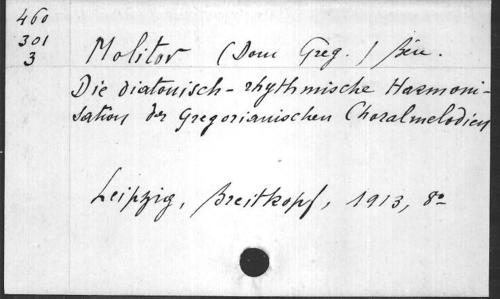 460
301
3
Molitor (Dom Greg.) Bén.
Die diatonisch-rhythmische Harmoni-
sation der Gregorianischen Choralmelodien
Leipzig, Breitkopf, 1913, 8º